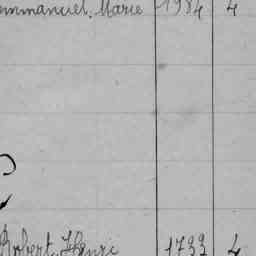 Emmanuel, Marie 1984 4
Robert, Henri 1733 4